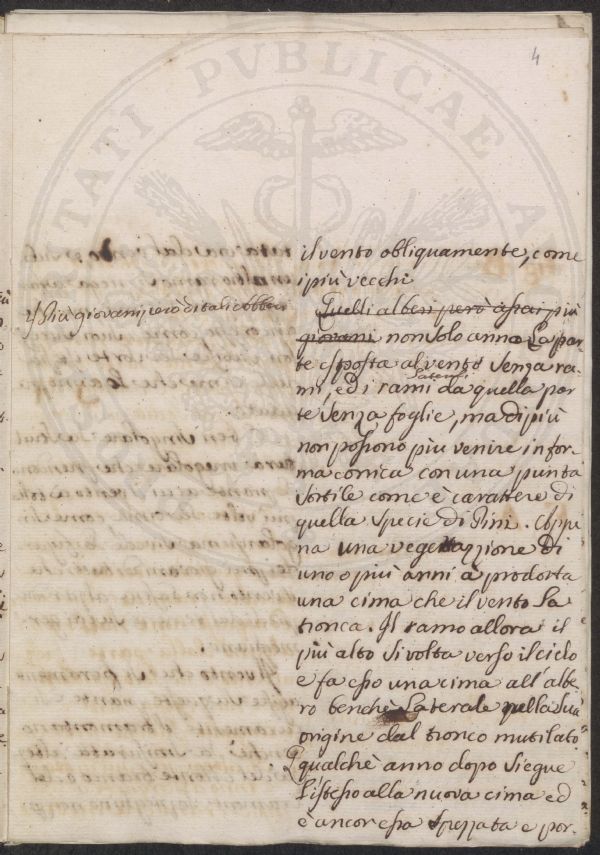 4
VTILITATI PVBLICAE
il vento obliquamente, come
i più vecchi
I più giovani però di tali abbeti
Quelli alberi però assai più
giovani non solo anno la par-
te esposta al vento senza ra-
laterali
mi, ed i rami da quella par
te senza foglie, ma di più
non possono più venire in for-
ma conica con una punta
sottile come è carattere di
quella specie di Pini. Appe
na una vegettazzione di
uno o più anni à prodotta
una cima che il vento la
tronca. Il ramo allora il
più alto si volta verso il cielo
e fa esso una cima all' albe
ro benchè laterale nella sua
origine dal tronco mutilato
qualche anno dopo siegue
l'istesso alla nuova cima ed
è ancor essa spezzata e por-